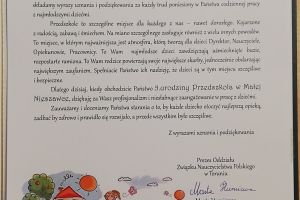 składamy wyrazy uznania i podziękowania za każdy trud poniesiony w Państwa codziennej pracy
z najmłodszymi dziećmi.
Przedszkole to szczególne miejsce dla każdego z nas – nawet dorosłego. Kojarzone
z radością, zabawą. Na miano szczególnego zasługuje również z wielu innych powodów.
To miejsce, w którym najważniejsza jest atmosfera, którą tworzą dla dzieci Dyrektor, Nauczyciele,
Opiekunowie, Pracownicy. To Wam najmłodsze dzieci zawdzięczają uśmiechnięte buzie,
rozpostarte ramiona. To Wam rodzice powierzają swoje największe skarby, jednocześnie obdarzając
największym zaufaniem. Spełniacie Państwo ich nadzieję, że dzieci są w tym miejscu szczęśliwe
i bezpieczne.
Dlatego dzisiaj, kiedy obchodzicie Państwo Jurodziny Przedszkola w Małej
Nieszawce, dziękuję za Wasz profesjonalizm i niezwykłe zaangażowanie w pracę z dziećmi.
Zauważamy i doceniamy Państwa starania o to, by każde dziecko otoczyć najlepszą opieką,
zadbać by zdrowo i prawidłowo się rozwijało, a przede wszystkim było szczęśliwe.
Z wyrazami uznania i podziękowania
Prezes Oddziału
Związku Nauczycielstwa Polskiego
w Toruniu